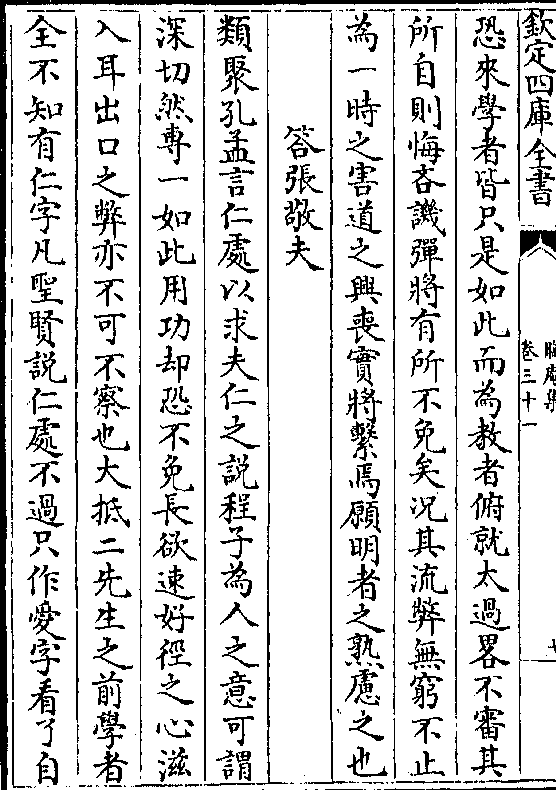 欽定四庫全書
晦庵集
卷三十一
恐來學者皆只是如此而為教者俯就太過畧不審其
所自則悔吝譏彈將有所不免矣况其流弊無窮不止
為一時之害道之興喪實將繫焉願明者之熟慮之也
答張敬夫
類聚孔孟言仁處以求夫仁之説程子為人之意可謂
深切然專一如此用功却恐不免長欲速好徑之心滋
入耳出口之弊亦不可不察也大抵二先生之前學者
全不知有仁字凡聖賢説仁處不過只作愛字看了自